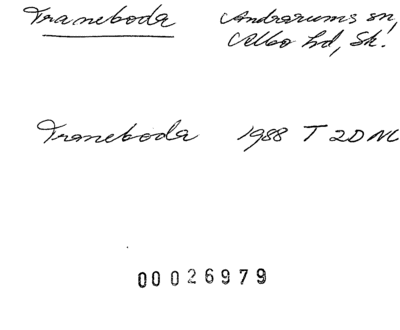 Traneboda Andrarums sn,
Albo hd, Sk.
Traneboda 1988 T 2D NV
00026979